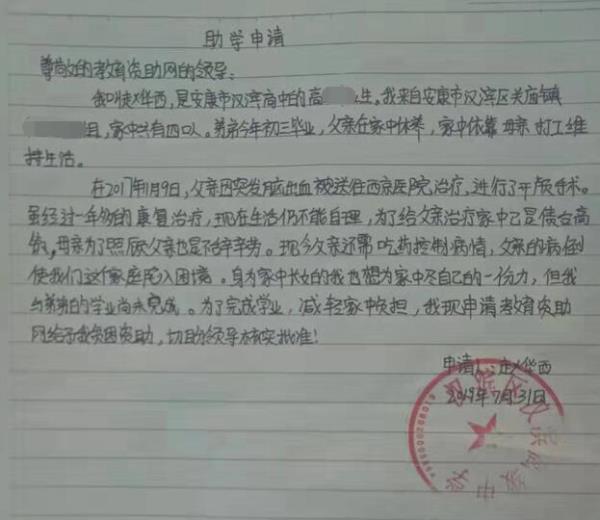 助学申请
尊敬的教育资助网的领导:
我叫赵华西,是安康市汉滨高中的高 生。我来自安康市汉滨区关庙镇
组,家中共有四口人。弟弟今年初三毕业,父亲在家中休养,家中依靠母亲打工维
持生活。
在2017年11月9日,父亲因突发脑出血被送往西京医院治疗,进行了开颅手术。
虽经过一年多的康复治疗,现在生活仍不能自理,为了给父亲治疗家中已是债台高
筑,母亲为了照顾父亲也是不辞辛劳。现今父亲还需吃药控制病情,父亲的病倒
使我们这个家庭陷入困境。身为家中长女的我也想为家中尽自己的一份力,但我
与弟弟的学业尚未完成。为了完成学业,减轻家中负担,我现申请教育资助
网给予我贫困资助,切盼领导核实批准!
申请人:赵华西
2019年7月31日